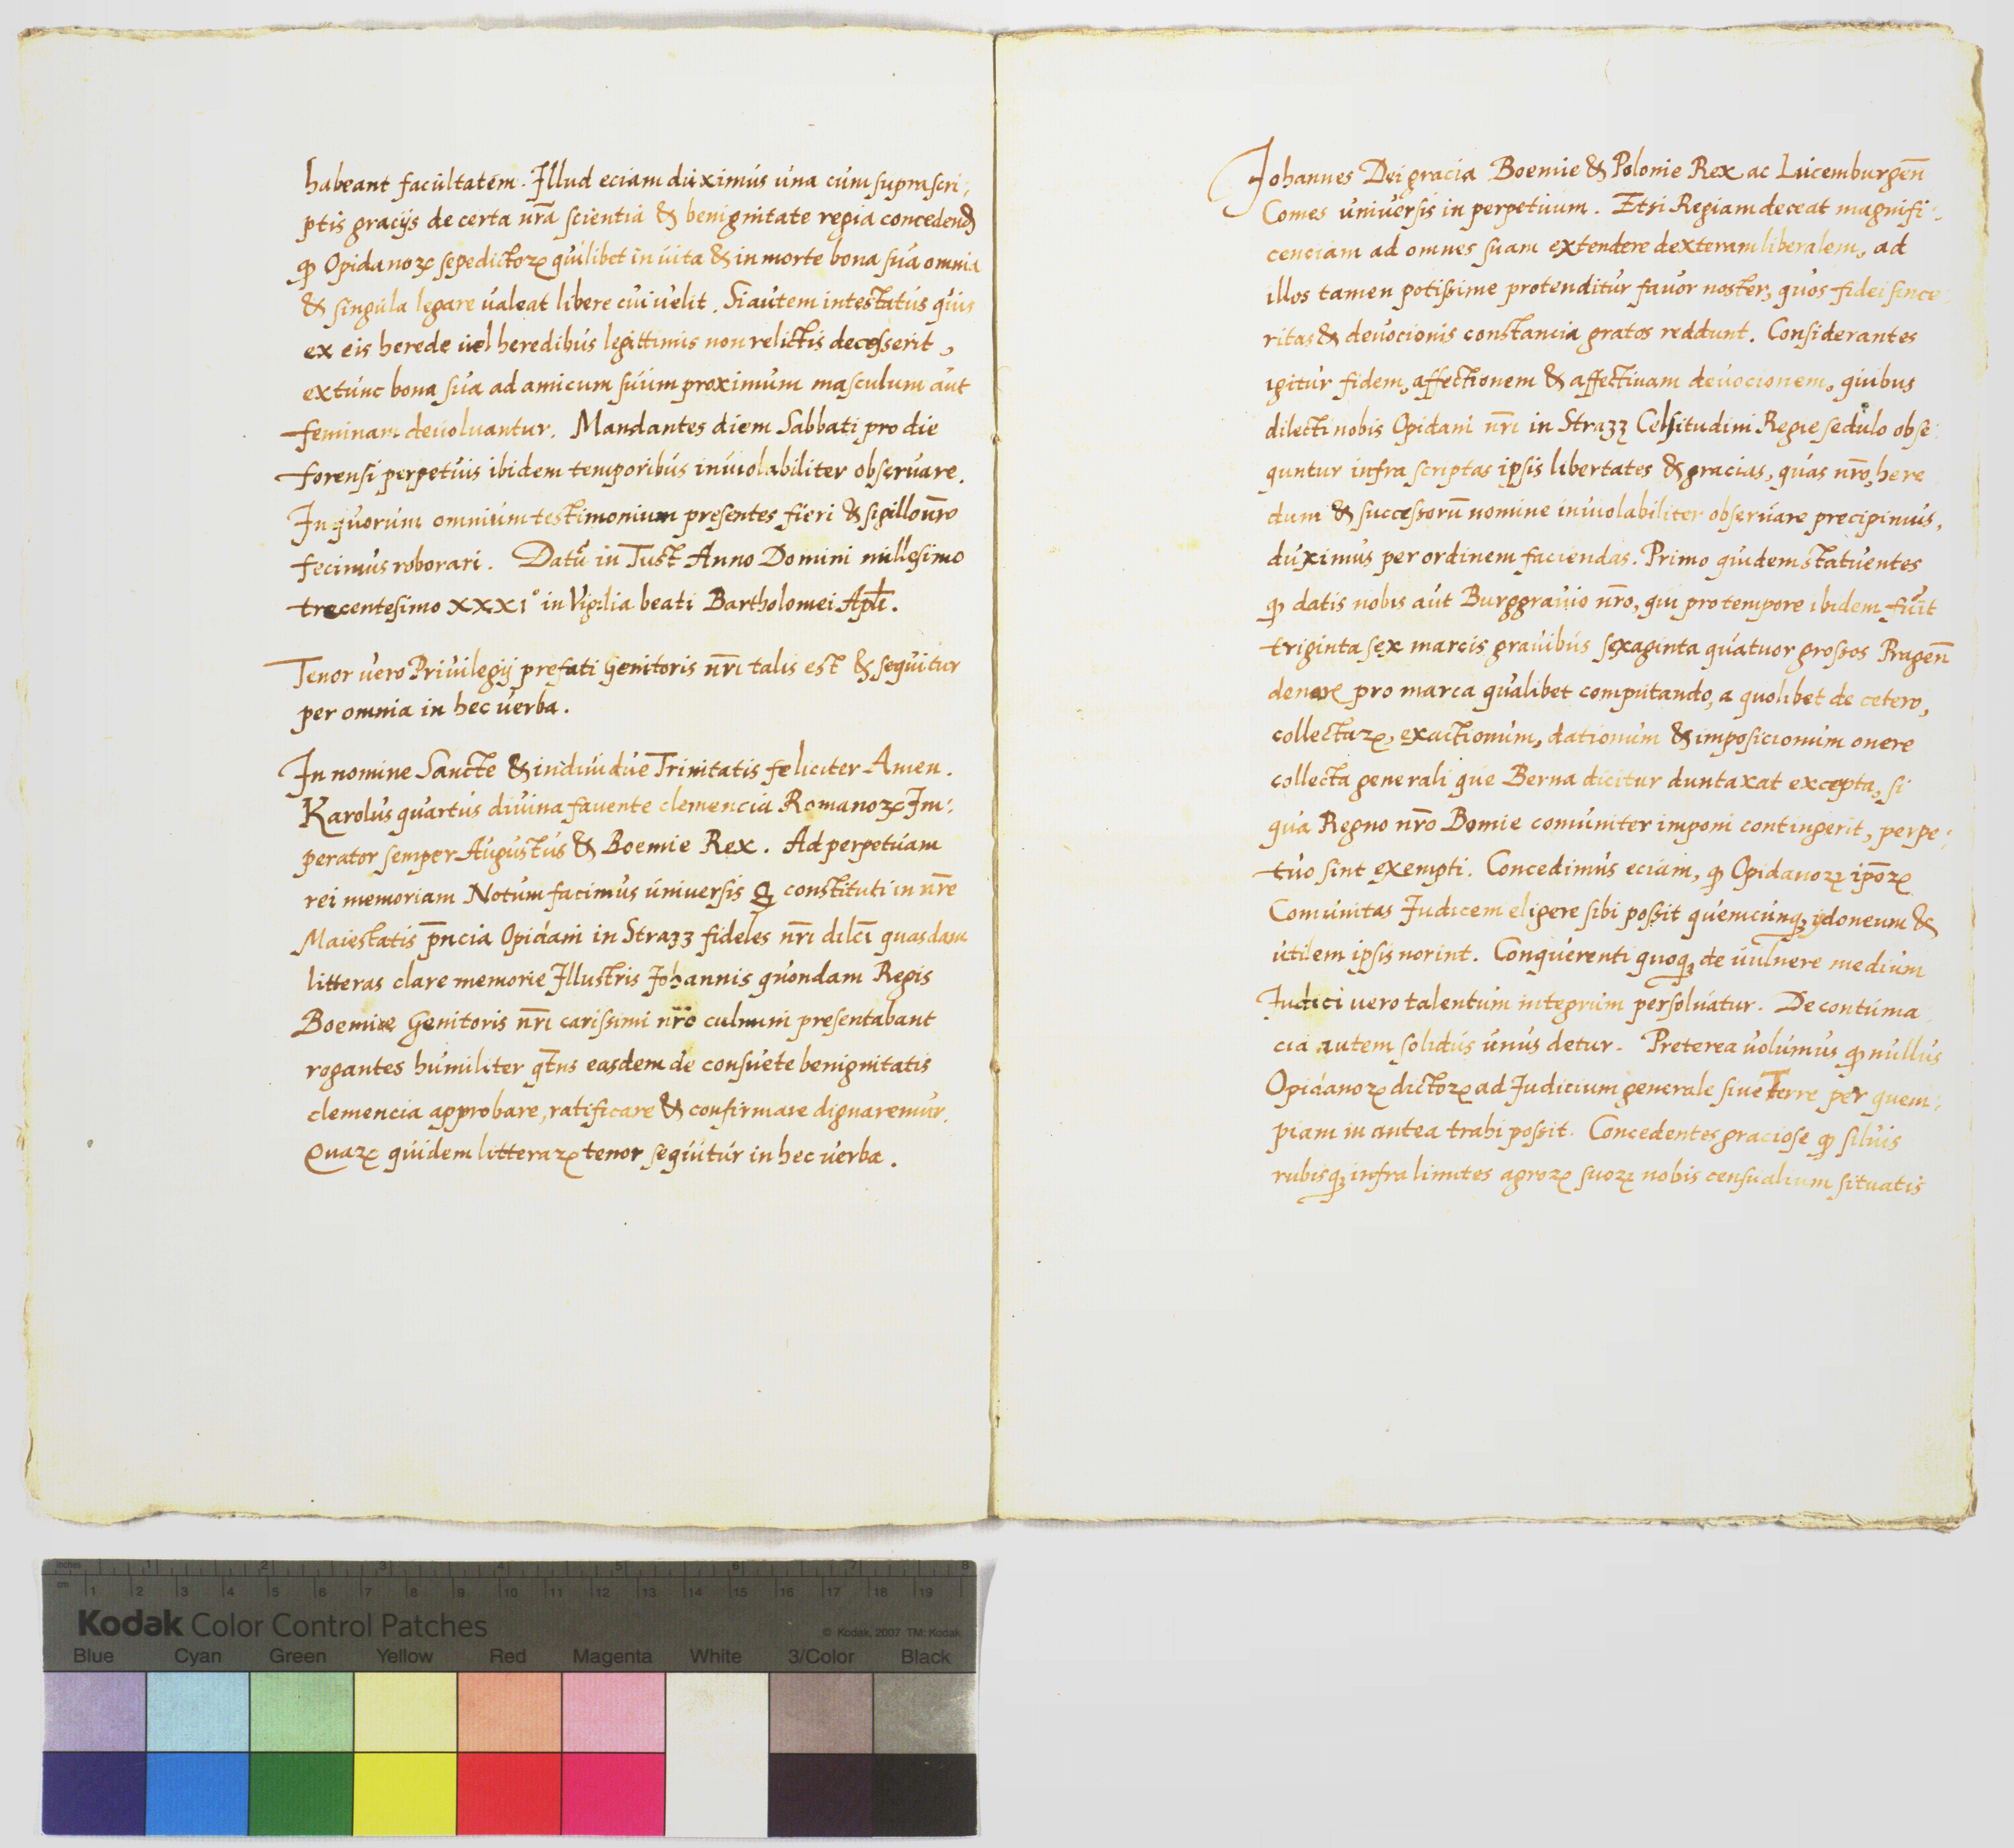 habeant facultatem. Illud eciam duximus una cum suprascri:
ptis gracijs de certa nr̃a scientia & benignitate regia concedend̃
ꝙ Opidanoꝝ sepedictoꝝ quilibet in uita & in morte bona sua omnia
& singula legare ualeat libere cui uelit. Si autem intestatus quis
ex eis herede uel heredibus legittimis non relictis decesserit,
extunc bona sua ad amicum suum proximum masculum aut
feminam deuoluantur. Mandantes diem Sabbati pro die
forensi perpetuis ibidem temporibus inuiolabiliter obseruare.
In quorum omnium testimonium presentes fieri & sigillo nr̃o
fecimus roborari. Datũ in Tust Anno Domini millesimo
trecentesimo XXXI° in Vigilia beati Bartholomei Apłi.
Tenor uero Priuilegij prefati Genitoris nr̃i talis est & sequitur
per omnia in hec uerba.
In nomine Sancte & indiuidue Trinitatis feliciter Amen.
Karolus quartus diuina fauente clemencia Romanoꝝ Im:
perator semper Augustus & Boemie Rex. Ad perpetuam
rei memoriam Notum facimus uniuersis ꝙ constituti in nr̃e
Maiestatis pñcia Opidani in Strazz fideles nr̃i dilc̃i quasdam
litteras clare memorie Illustris Johannis quondam Regis
Boemie Genitoris nr̃i carissimi nr̃o culmini presentabant
rogantes humiliter qt̃ns easdem de consuete benignitatis
clemencia approbare, ratificare & confirmare dignaremur.
Quaꝝ quidem litteraꝝ tenor sequitur in hec uerba.
Johannes Dei gracia Boemie & Polonie Rex ac Lucemburgeñ
Comes uniuersis in perpetuum. Etsi Regiam deceat magnifi:
cenciam ad omnes suam extendere dexteram liberalem, ad
illos tamen potissime protenditur fauor noster, quos fidei since:
ritas & deuocionis constancia gratos reddunt. Considerantes
igitur fidem, affectionem & affectiuam deuocionem, quibus
dilecti nobis Opidani nr̃i in Strazz Celsitudini Regie sedulo obse:
quntur infra scriptas ipsis libertates & gracias, quas nr̃o, here
dum & successorũ nomine inuiolabiliter obseruare precipimus,
duximus per ordinem faciendas. Primo quidem statuentes
ꝙ datis nobis aut Burggrauio nr̃o, qui pro tempore ibidem fuĩt
triginta sex marcis grauibus sexaginta quatuor grossos Prageñ
denaꝝ pro marca qualibet computando, a quolibet de cetero,
collectaꝝ, exactionum, dationum & imposicionum onere
collecta generali que Berna dicitur duntaxat excepta, si
qua Regno nr̃o Bomie comuniter imponi contingerit, perpe:
tuo sint exempti. Concedimus eciam, ꝙ Opidanoꝝ ip̃oꝝ
Comunitas Judicem eligere sibi possit quemcunqꝫ ydoneum &
utilem ipsis norint. Conquerenti quoqꝫ de uulnere medium
Judici uero talentum integrum persoluatur. De contuma
cia autem solidus unus detur. Preterea uolumus ꝙ nullus
Opidanoꝝ dictoꝝ ad Judicium generale siue Terre per quem:
piam in antea trahi possit. Concedentes graciose ꝙ siluis
rubisqꝫ infra limites agroꝝ suoꝝ nobis censualium situatis
inches 1 2 3 4 5 6 7 8
cm 1 2 3 4 5 6 7 8 9 10 11 12 13 14 15 16 17 18 19
Kodak Color Control Patches
© Kodak, 2007 TM: Kodak
Blue Cyan Green Yellow Red Magenta White 3/Color Black